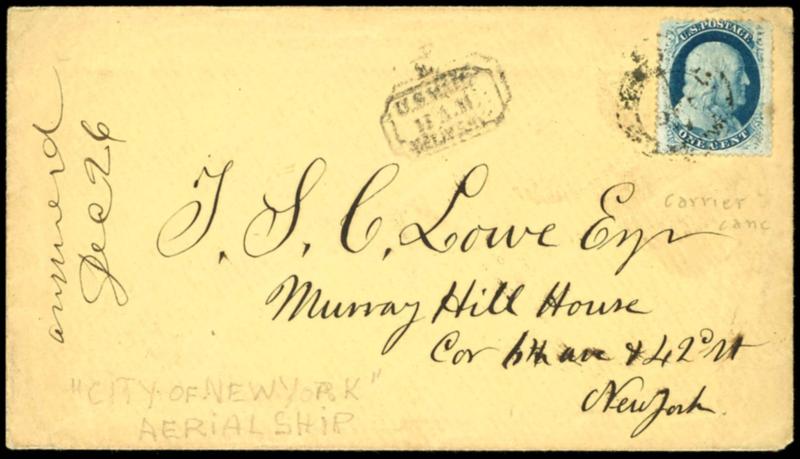 U.S. POSTAGE
ONE CENT
U.S. MAIL
11 A.M.
DELIVERY
answered
Dec 26
T. S. C. Lowe Esqr
Murray Hill House
Cor 6th ave & 42d St
New York.
carrier
canc
"CITY OF NEW YORK"
AERIAL SHIP